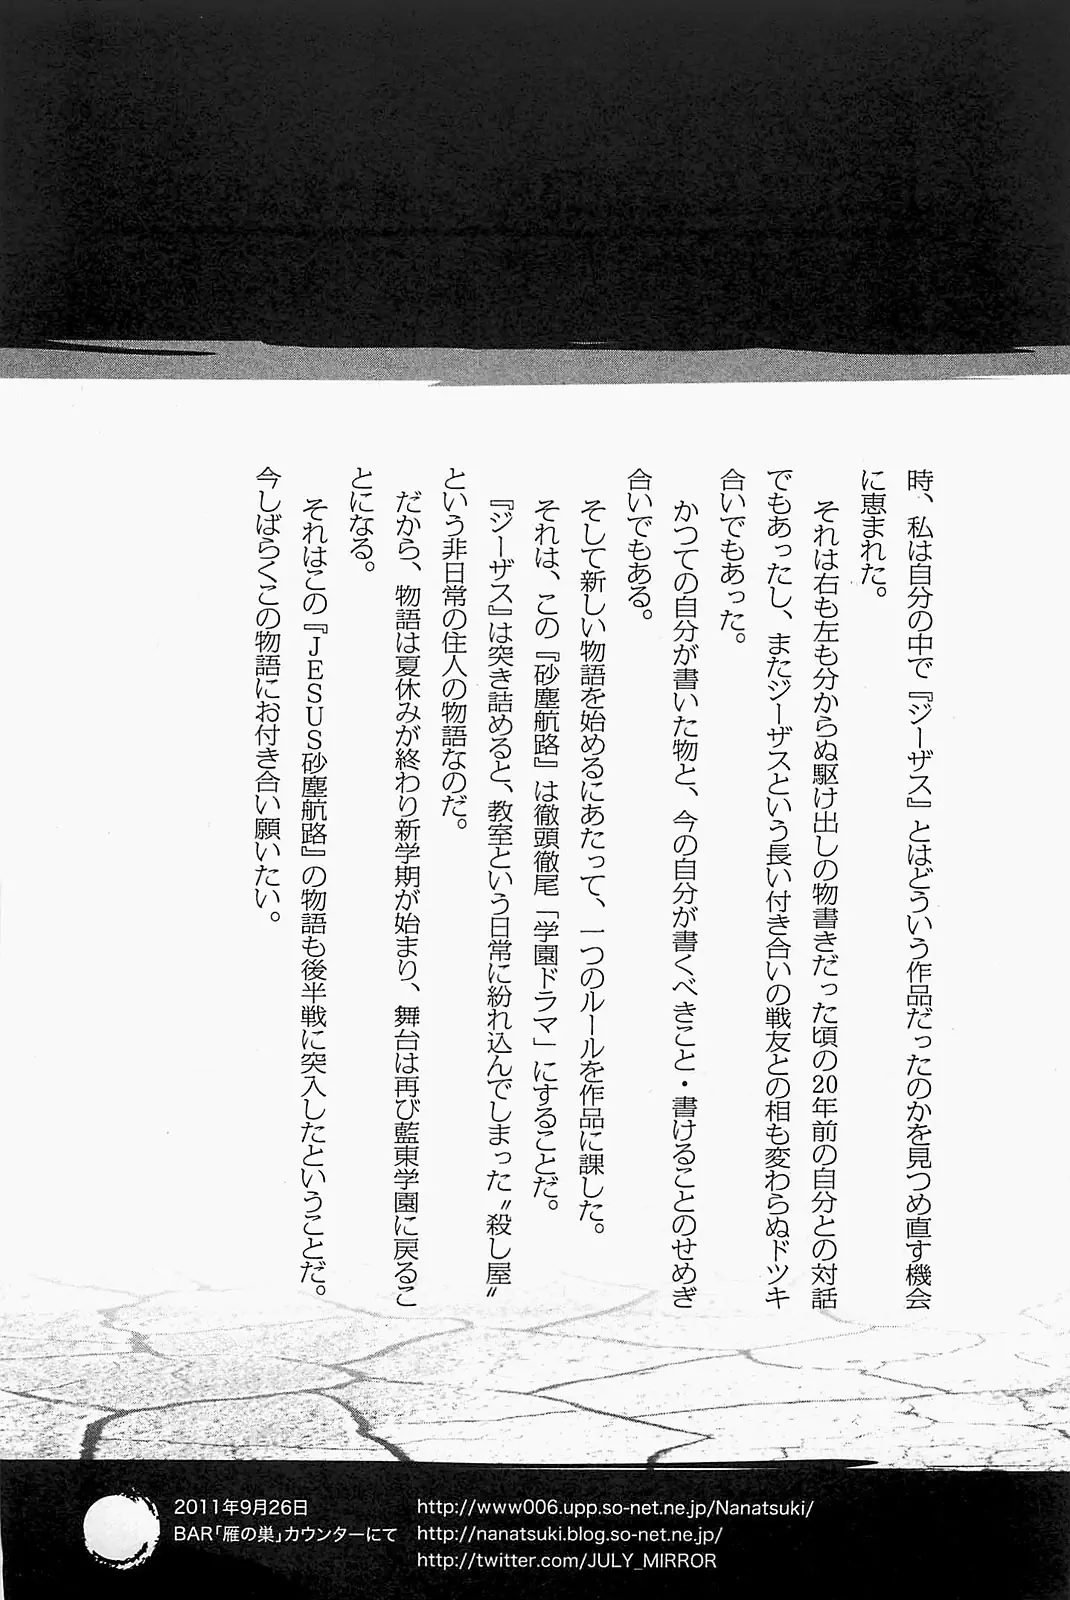 時、私は自分の中で『ジーザス』とはどういう作品だったのかを見つめ直す機会
に恵まれた。
それは右も左も分からぬ駆け出しの物書きだった頃の20年前の自分との対話
でもあったし、またジーザスという長い付き合いの戦友との相も変わらぬドツキ
合いでもあった。
かつての自分が書いた物と、今の自分が書くべきこと・書けることのせめぎ
合いでもある。
そして新しい物語を始めるにあたって、一つのルールを作品に課した。
それは、この『砂塵航路』は徹頭徹尾「学園ドラマ」にすることだ。
『ジーザス』は突き詰めると、教室という日常に紛れ込んでしまった〝殺し屋〟
という非日常の住人の物語なのだ。
だから、物語は夏休みが終わり新学期が始まり、舞台は再び藍東学園に戻るこ
とになる。
それはこの『JESUS砂塵航路』の物語も後半戦に突入したということだ。
今しばらくこの物語にお付き合い願いたい。
2011年9月26日
BAR「雁の巣」カウンターにて
http://www006.upp.so-net.ne.jp/Nanatsuki/
http://nanatsuki.blog.so-net.ne.jp/
http://twitter.com/JULY_MIRROR